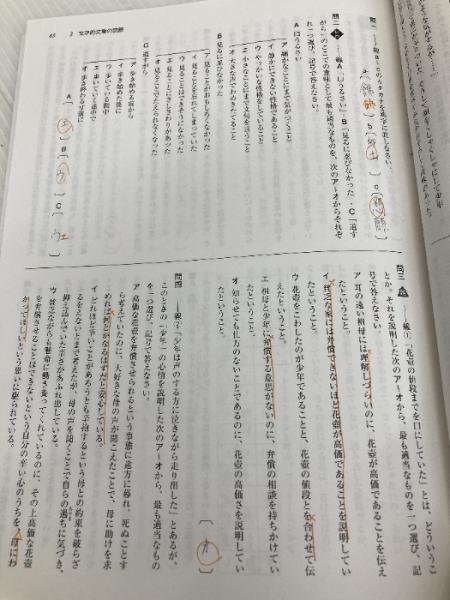 65　2　文学的文章の読解
がら」のここでの意味として最も適当なものを、次のア〜オからそれぞ
れ一つ選び、記号で答えなさい。
A　口うるさい
ア　細かなことにまで気がつくこと
イ　静かにできない性格であること
ウ　やっかいな性格をしていること
エ　小さなことにまで文句を言うこと
オ　大きな声でわめきたてること
B　見るに忍びなかった
ア　見ることがおもしろくなかった
イ　見ることに飽きてしまっていた
ウ　見ることはできそうになかった
エ　見ることにさしさわりがあった
オ　見ることでたえられなくなった
C　道すがら
ア　歩き始める前から
イ　歩き始めた後に
ウ　歩いている間中
エ　歩いている途中で
オ　歩き終わる寸前に
A〔エ〕B〔う〕C〔ウエ〕
問三　――線①「花壺の値段までを口にしていた」とは、どういうこ
とか。それを説明した次のア〜オから、最も適当なものを一つ選び、記
号で答えなさい。
ア　耳の遠い祖母には理解しづらいのに、花壺が高価であることを伝え
たということ。
イ　貧乏な家には弁償できないほど花壺が高価であることを説明してい
たということ。
ウ　花壺をこわしたのが少年であることと、花壺の値段とを合わせて伝
えたということ。
エ　祖母と少年に弁償する意思がないのに、弁償の相談を持ちかけてい
たということ。
オ　知らせても仕方のないことであるのに、花壺の高価さを説明してい
たということ。
〔オ〕
問四　――線②「少年は声のする方に泣きながら走り出した」とあるが、
このときの「少年」の心情を説明した次のア〜オから、最も適当なもの
を一つ選び、記号で答えなさい。
ア　高価な花壺を弁償させられるという事態に途方に暮れ、死ぬことす
ら考えていたのに、大好きな母の声が聞こえたことで、母に助けを求
めれば何とかなるはずだと安心している。
イ　どれほど辛いことがあろうとも辛抱するという母との約束を破らざ
るをえないとまで考えたが、母の声を聞くことで自らの過ちに気づき、
抑え込んでいた辛さがあふれ出している。
ウ　貧乏ながらも懸命に働き養ってくれているのに、その上高価な花壺
を弁償させることはできないという自分の辛い心のうちを、母にわ
かってほしいという思いに駆られている。